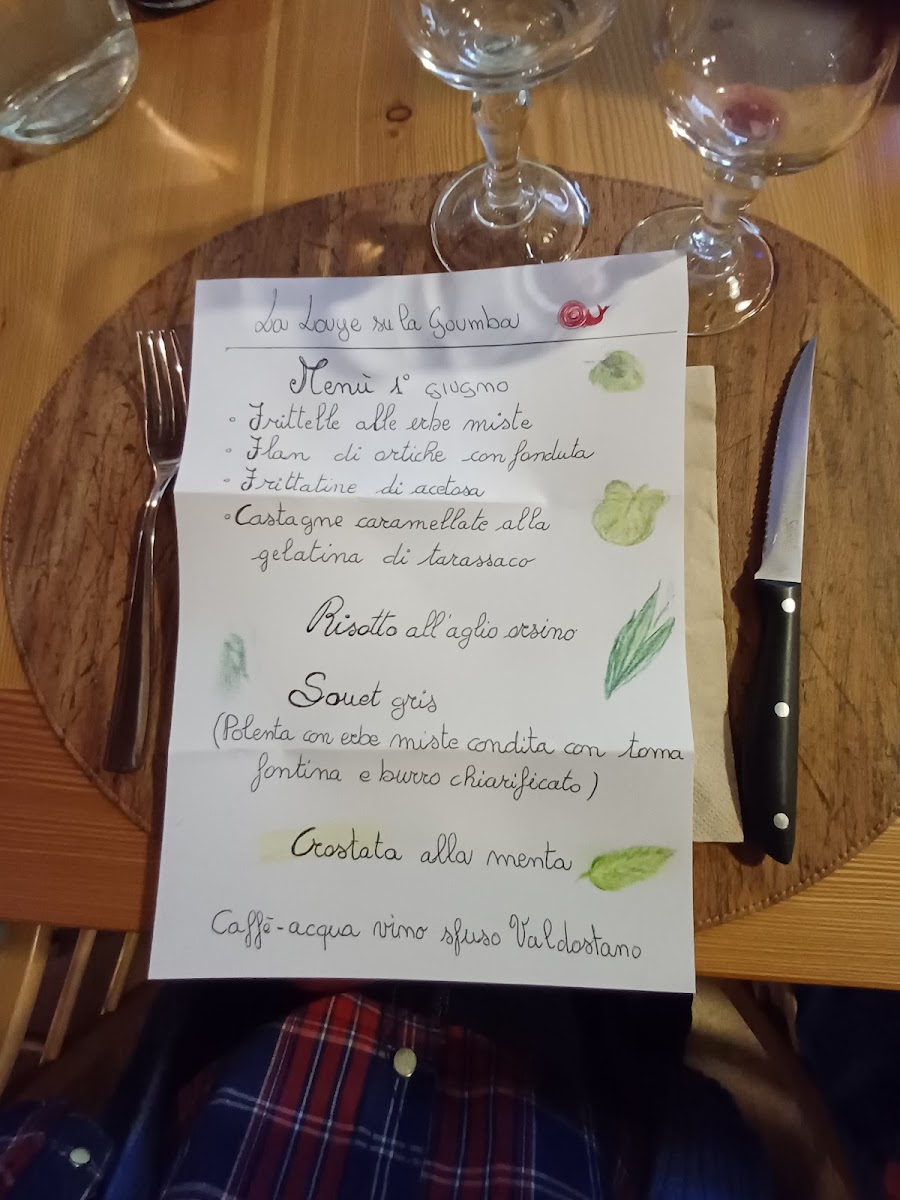 La Louye su la Goumba
Menù 1° giugno
• Frittelle alle erbe miste
• Flan di ortiche con fonduta
• Frittatine di acetosa
• Castagne caramellate alla
gelatina di tarassaco
Risotto all'aglio orsino
Souet gris
(Polenta con erbe miste condita con toma
fontina e burro chiarificato)
Crostata alla menta
Caffè-acqua vino sfuso Valdostano